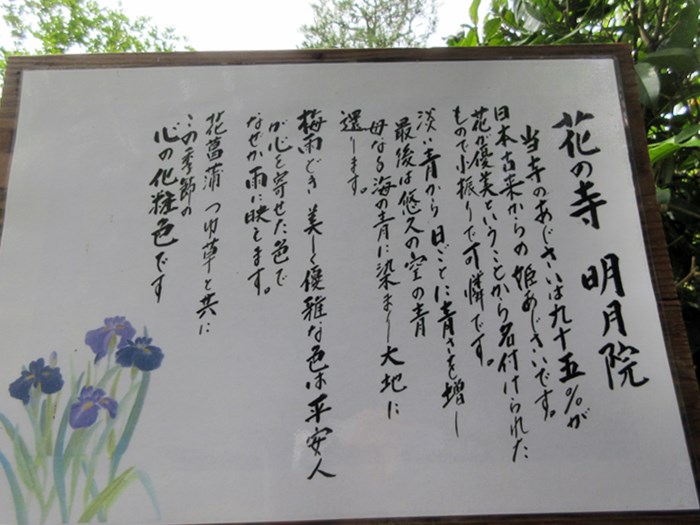 花の寺 明月院
当寺のあじさいは九十五%が
日本古来からの姫あじさいです。
花が優美ということから名付けられた
もので小振りで可憐です。
淡い青から日ごとに青さを増し
最後は悠久の空の青
母なる海の青に染まり大地に
還ります。
梅雨どき 美しく優雅な色は平安人
が心を寄せた色で
なぜか雨に映えます。
花菖蒲 つゆ草と共に
この季節の
心の化粧色です